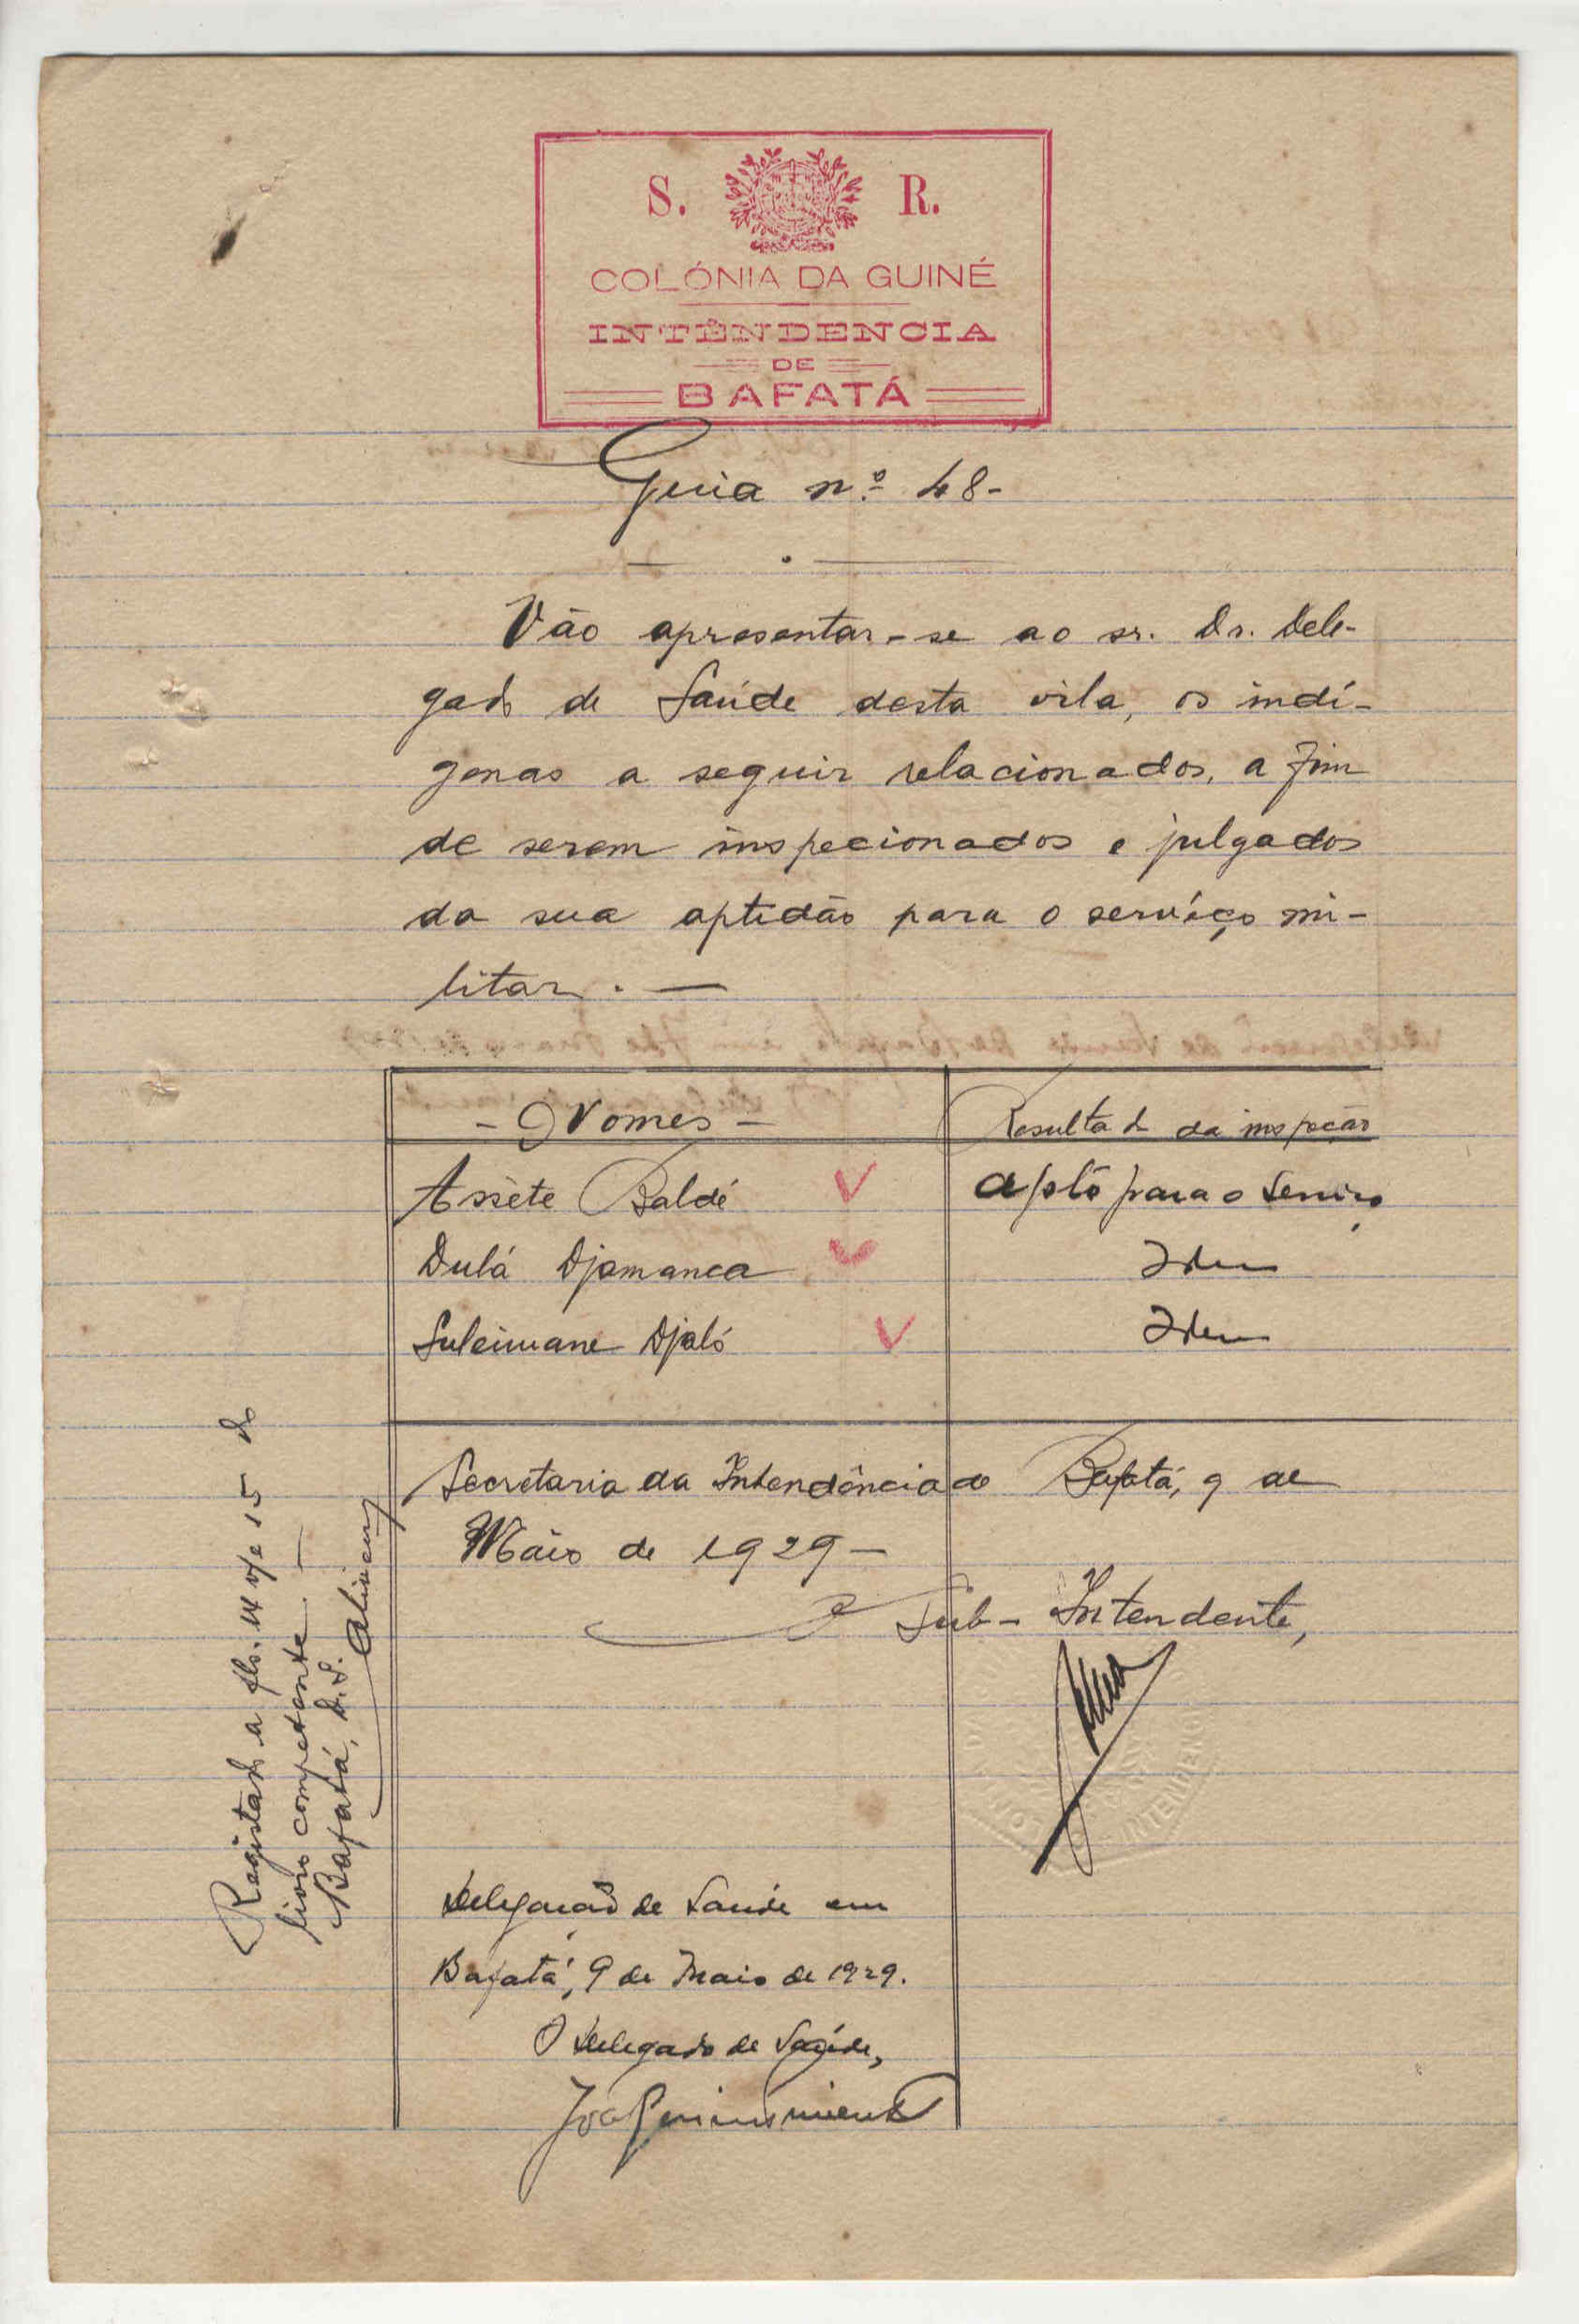 S. R.
COLÓNIA DA GUINÉ
INTÊNDENCIA
DE
BAFATÁ
Guia nº 48-
Vão apresentar-se ao sr. Dr. Dele-
gado de Saúde desta vila, os indí-
genas a seguir relacionados, a fim
de serem inspecionados e julgados
da sua aptidão para o serviço mi-
litar. —
- Nomes - Resultado da inspecção
Assète Baldé V apto para o serviço
Dulá Djamanca V Idem
Suleimane Djaló V Idem
Secretaria da Intendência de Bafatá, 9 de
Maio de 1929 —
O Sub-Intendente,
INTENDENC
Delegação de Saude em
Bafatá, 9 de Maio de 1929.
O Delegado de Saúde,
Registado a fls. 14 v/e 15 do
livro competente. —
Bafatá, D.S.